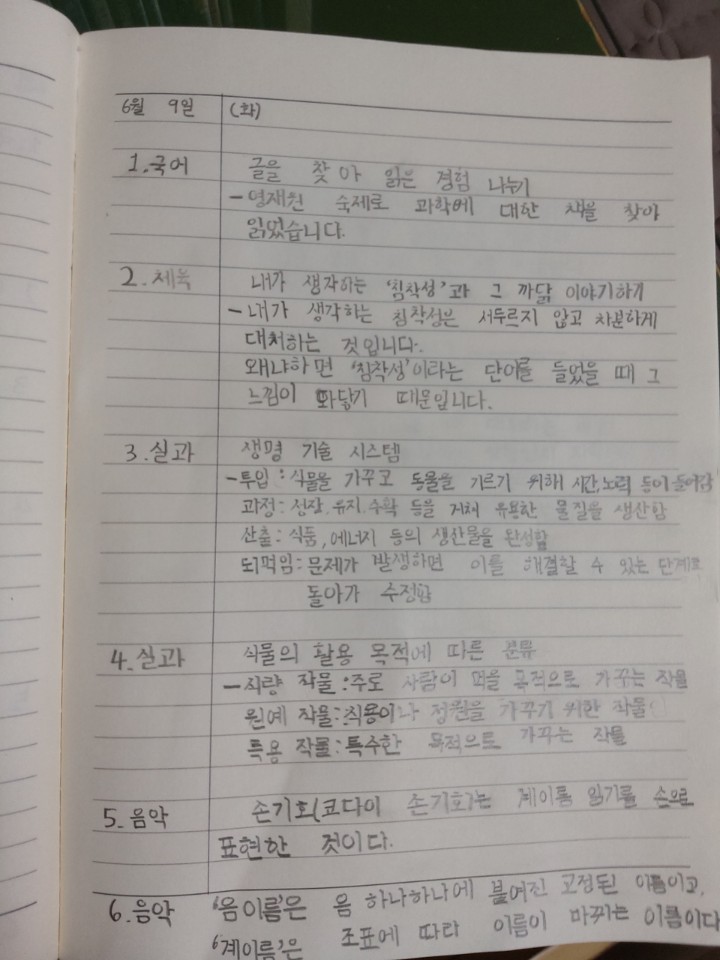 6월 9일 (화)
1. 국어 글을 찾아 읽은 경험 나누기
- 영재원 숙제로 과학에 대한 책을 찾아
읽었습니다.
2. 체육 내가 생각하는 '침착성'과 그 까닭 이야기하기
- 내가 생각하는 침착성은 서두르지 않고 차분하게
대처하는 것입니다.
왜냐하면 '침착성'이라는 단어를 들었을 때 그
느낌이 와닿기 때문입니다.
3. 실과 생명 기술 시스템
- 투입 : 식물을 가꾸고 동물을 기르기 위해 시간, 노력 등이 들어감
과정 : 성장, 유지, 수확 등을 거쳐 유용한 물질을 생산함
산출 : 식품, 에너지 등의 생산물을 완성함
되먹임 : 문제가 발생하면 이를 해결할 수 있는 단계로
돌아가 수정함
4. 실과 식물의 활용 목적에 따른 분류
- 식량 작물 : 주로 사람이 먹을 목적으로 가꾸는 작물
원예 작물 : 식용이나 정원을 가꾸기 위한 작물
특용 작물 : 특수한 목적으로 가꾸는 작물
5. 음악 손기호(코다이 손기호)는 계이름 읽기를 손으로
표현한 것이다.
6. 음악 '음이름'은 음 하나하나에 붙여진 고정된 이름이고,
'계이름'은 조표에 따라 이름이 바뀌는 이름이다